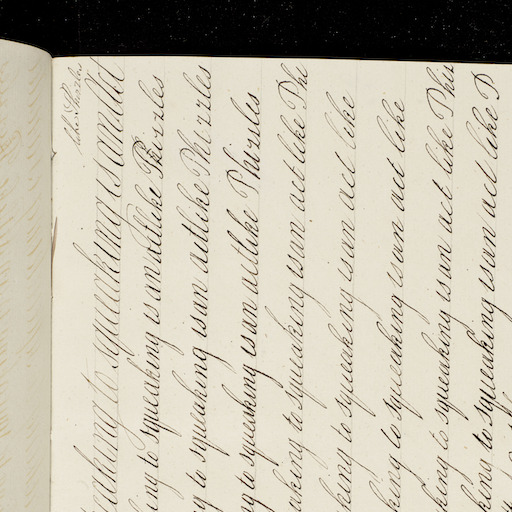 like Phizzles
aking to squeaking is an act
ing to squeaking is an act like Phizzles
g to squeaking is an act like Phizzles
ng to squeaking is an act like Phizzles
aking to squeaking is an act like Phi
king to squeaking is an act like
aking to squeaking is an act like
king to squeaking is an act like Phi
king to squeaking is an act like P